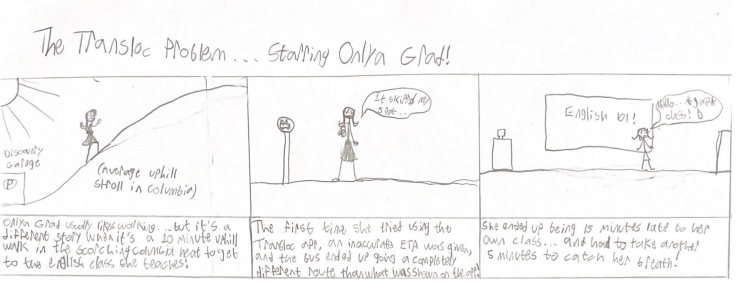 The Transloc Problem... Starring Onlya Grad!
Discovery
Garage
P
(average uphill
stroll in Columbia)
It skipped my
stop...
English 101!
Hello...
class!
Onlya Grad usually likes walking... but it's a
different story when it's a 20 minute uphill
walk in the scorching Columbia heat to get
to the english class she teaches!
The first time she tried using the
Transloc app, an inaccurate ETA was given,
and the bus ended up going a completely
different route than what was shown on the app!
She ended up being 15 minutes late to her
own class... and had to take another
5 minutes to catch her breath!